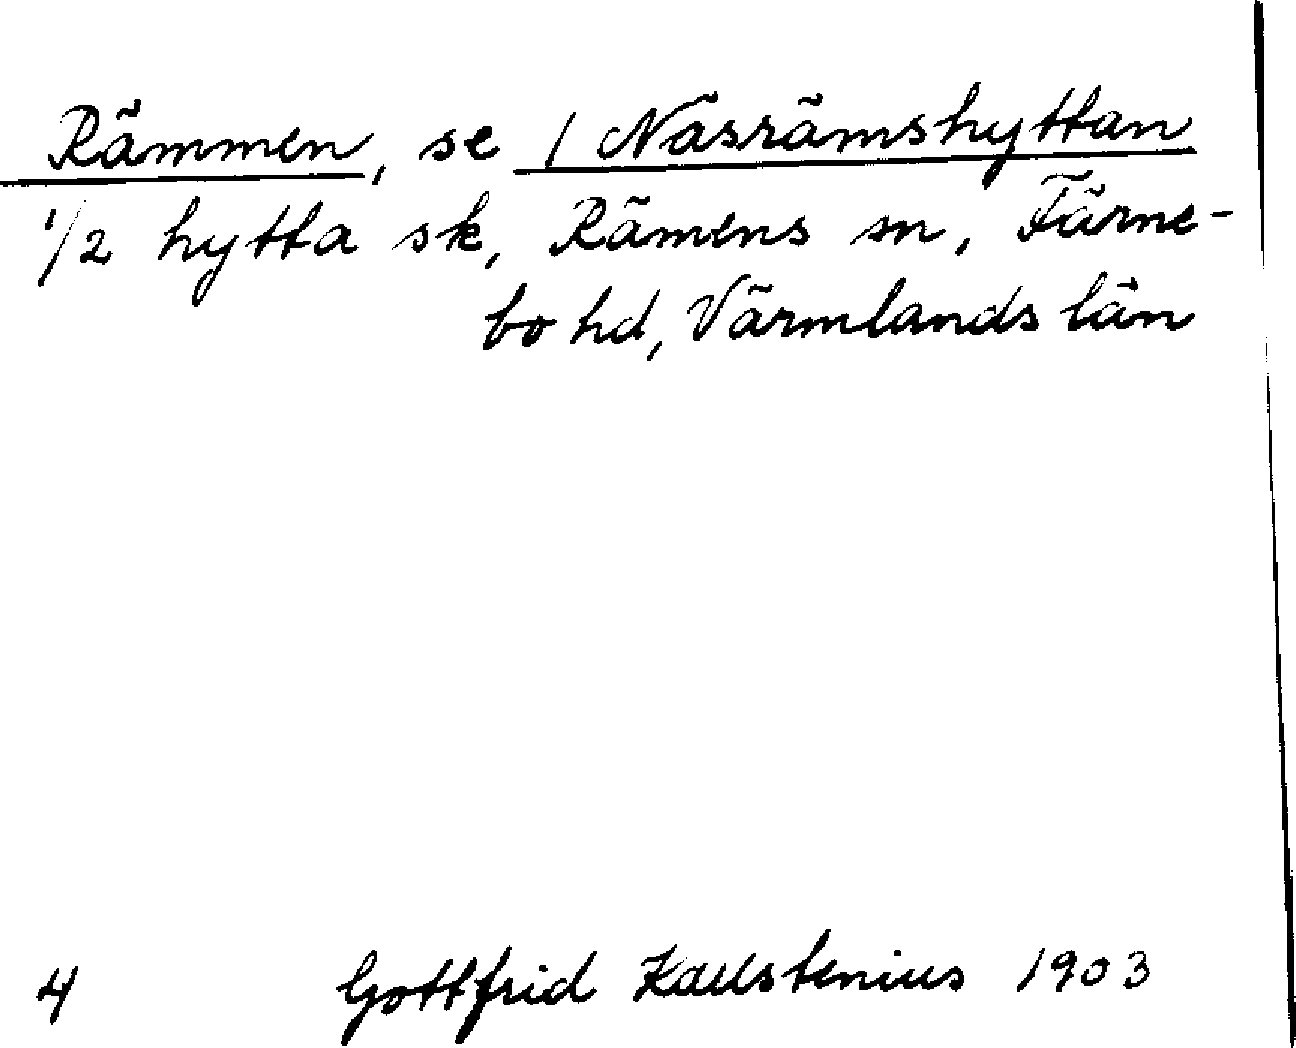 Rämmen, se / Näsrämshyttan
1/2 hytta sk, Rämens sn, Färne-
bo hd, Värmlands län
4 Gottfrid Kallstenius 1903